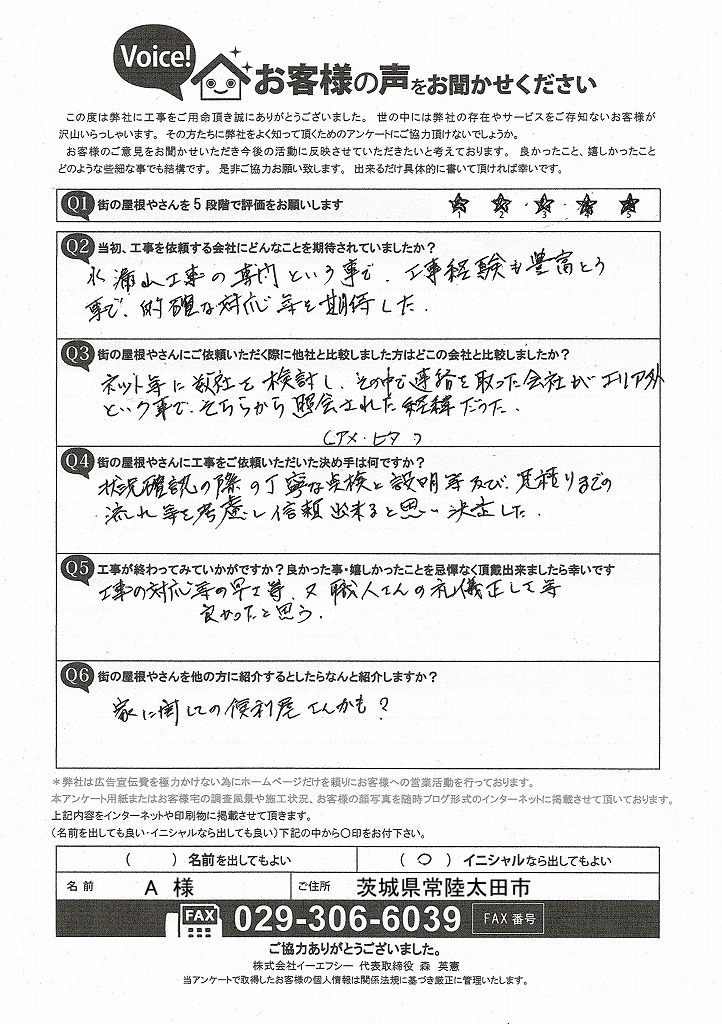 Voice!
お客様の声をお聞かせください
この度は弊社に工事をご用命頂き誠にありがとうございました。 世の中には弊社の存在やサービスをご存知ないお客様が
沢山いらっしゃいます。 その方たちに弊社をよく知って頂くためのアンケートにご協力頂けないでしょうか。
お客様のご意見をお聞かせいただき今後の活動に反映させていただきたいと考えております。 良かったこと、嬉しかったこと
どのような些細な事でも結構です。 是非ご協力お願い致します。 出来るだけ具体的に書いて頂ければ幸いです。
Q1 街の屋根やさんを5段階で評価をお願いします
1 2 3 4 5
Q2 当初、工事を依頼する会社にどんなことを期待されていましたか?
水漏れ工事の専門という事で、工事経験も豊富とう
事で、的確な対応等を期待した。
Q3 街の屋根やさんにご依頼いただく際に他社と比較しました方はどこの会社と比較しましたか?
ネット等に数社を検討し、その中で連絡を取った会社がエリア外
という事で、そちらから照会された経緯だった。
(アメ・ヒタ )
Q4 街の屋根やさんに工事をご依頼いただいた決め手は何ですか?
状況確認の際の丁寧な点検と説明等及び、見積りまでの
流れ等を考慮し信頼出来ると思い決定した。
Q5 工事が終わってみていかがですか?良かった事・嬉しかったことを忌憚なく頂戴出来ましたら幸いです
工事の対応等の早さ等、又職人さんの礼儀正しさ等
良かったと思う。
Q6 街の屋根やさんを他の方に紹介するとしたらなんと紹介しますか?
家に関しての便利屋さんかも?
*弊社は広告宣伝費を極力かけない為にホームページだけを頼りにお客様への営業活動を行っております。
本アンケート用紙またはお客様宅の調査風景や施工状況、お客様の顔写真を随時ブログ形式のインターネットに掲載させて頂いております。
上記内容をインターネットや印刷物に掲載させて頂きます。
(名前を出しても良い・イニシャルなら出しても良い)下記の中から〇印をお付下さい。
( )名前を出してもよい (○)イニシャルなら出してもよい
名前 A 様 ご住所 茨城県常陸太田市
FAX 029-306-6039 FAX番号
ご協力ありがとうございました。
株式会社イーエフシー 代表取締役 森 英憲
当アンケートで取得したお客様の個人情報は関係法規に基づき厳正に管理いたします。